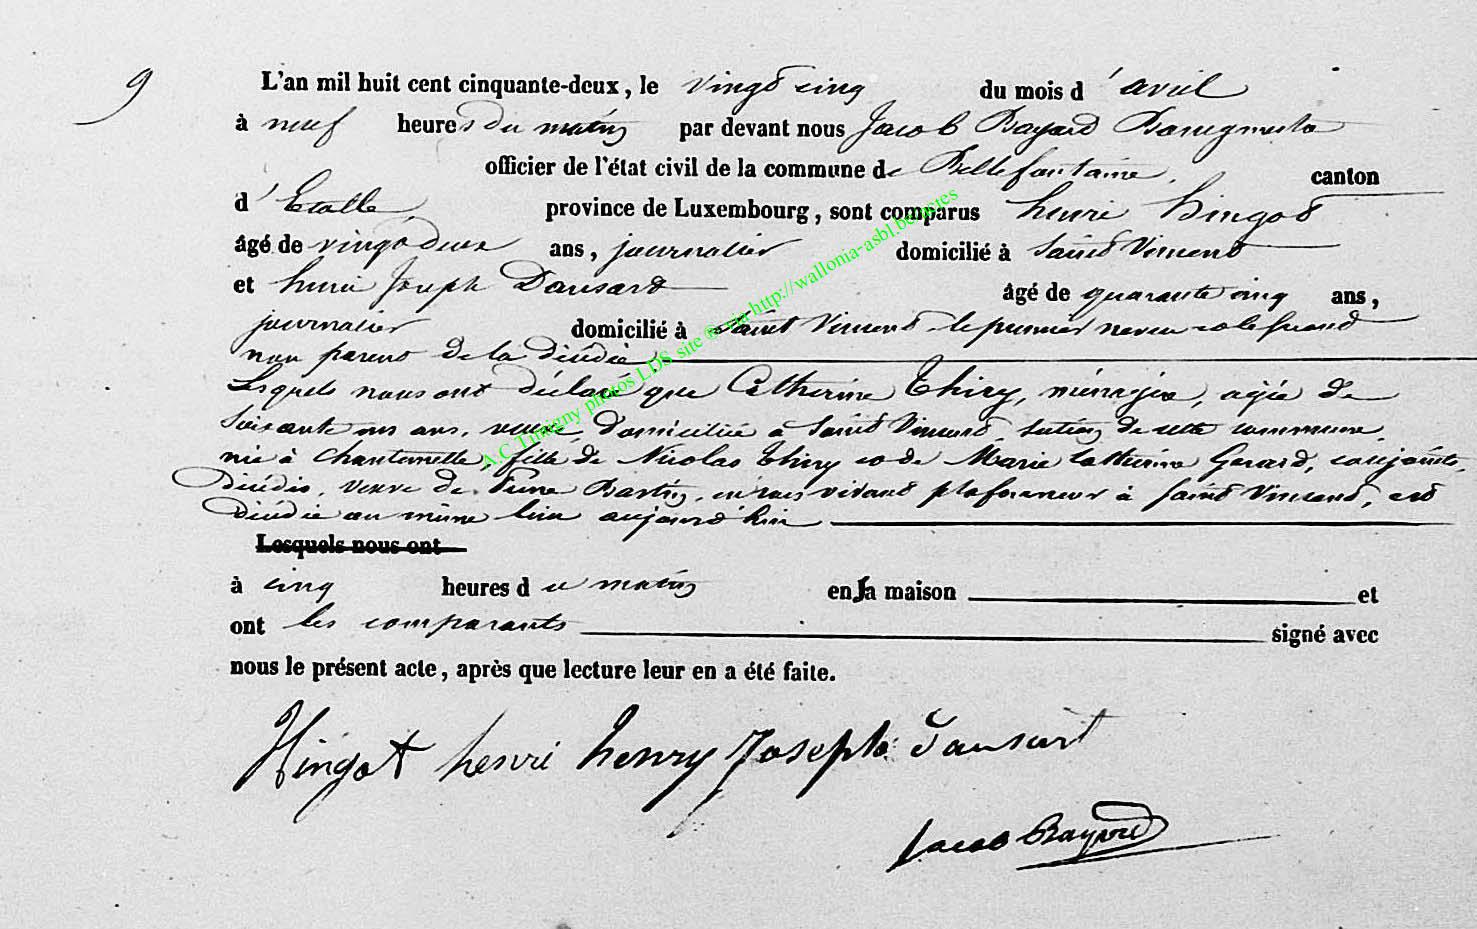 9
L'an mil huit cent cinquante-deux, le vingt cinq du mois d'avril
à neuf heures du matin par devant nous Jacob Bayard Bourgmestre
officier de l'état civil de la commune de Bellefontaine, canton
d'Etalle, province de Luxembourg, sont comparus henri hingot
âgé de vingt deux ans, journalier domicilié à Saint Vincent
et henri Joseph Dansart âgé de quarante cinq ans,
journalier domicilié à Saint Vincent le premier neveu et le second
non parent de la décédée
Lesquels nous ont déclaré que Catherine Thiry, ménagère, agée de
Soixante ans, veuve, domiciliée à Saint Vincent, section de cette commune,
née à Chantemelle, fille de Nicolas Thiry et de Marie Catherine Gerard, conjoints,
décédés, veuve de Pierre Bartin, en son vivant plafonneur à Saint Vincent, est
décédée au même lieu aujourd'hui
Lesquels nous ont
à cinq heures du matin en sa maison et
ont les comparants signé avec
nous le présent acte, après que lecture leur en a été faite.
Hingot henri henry Joseph Dansart
Jacob Bayard
A.C. Tintigny photos LDS site © via http://wallonia-asbl.be/actes